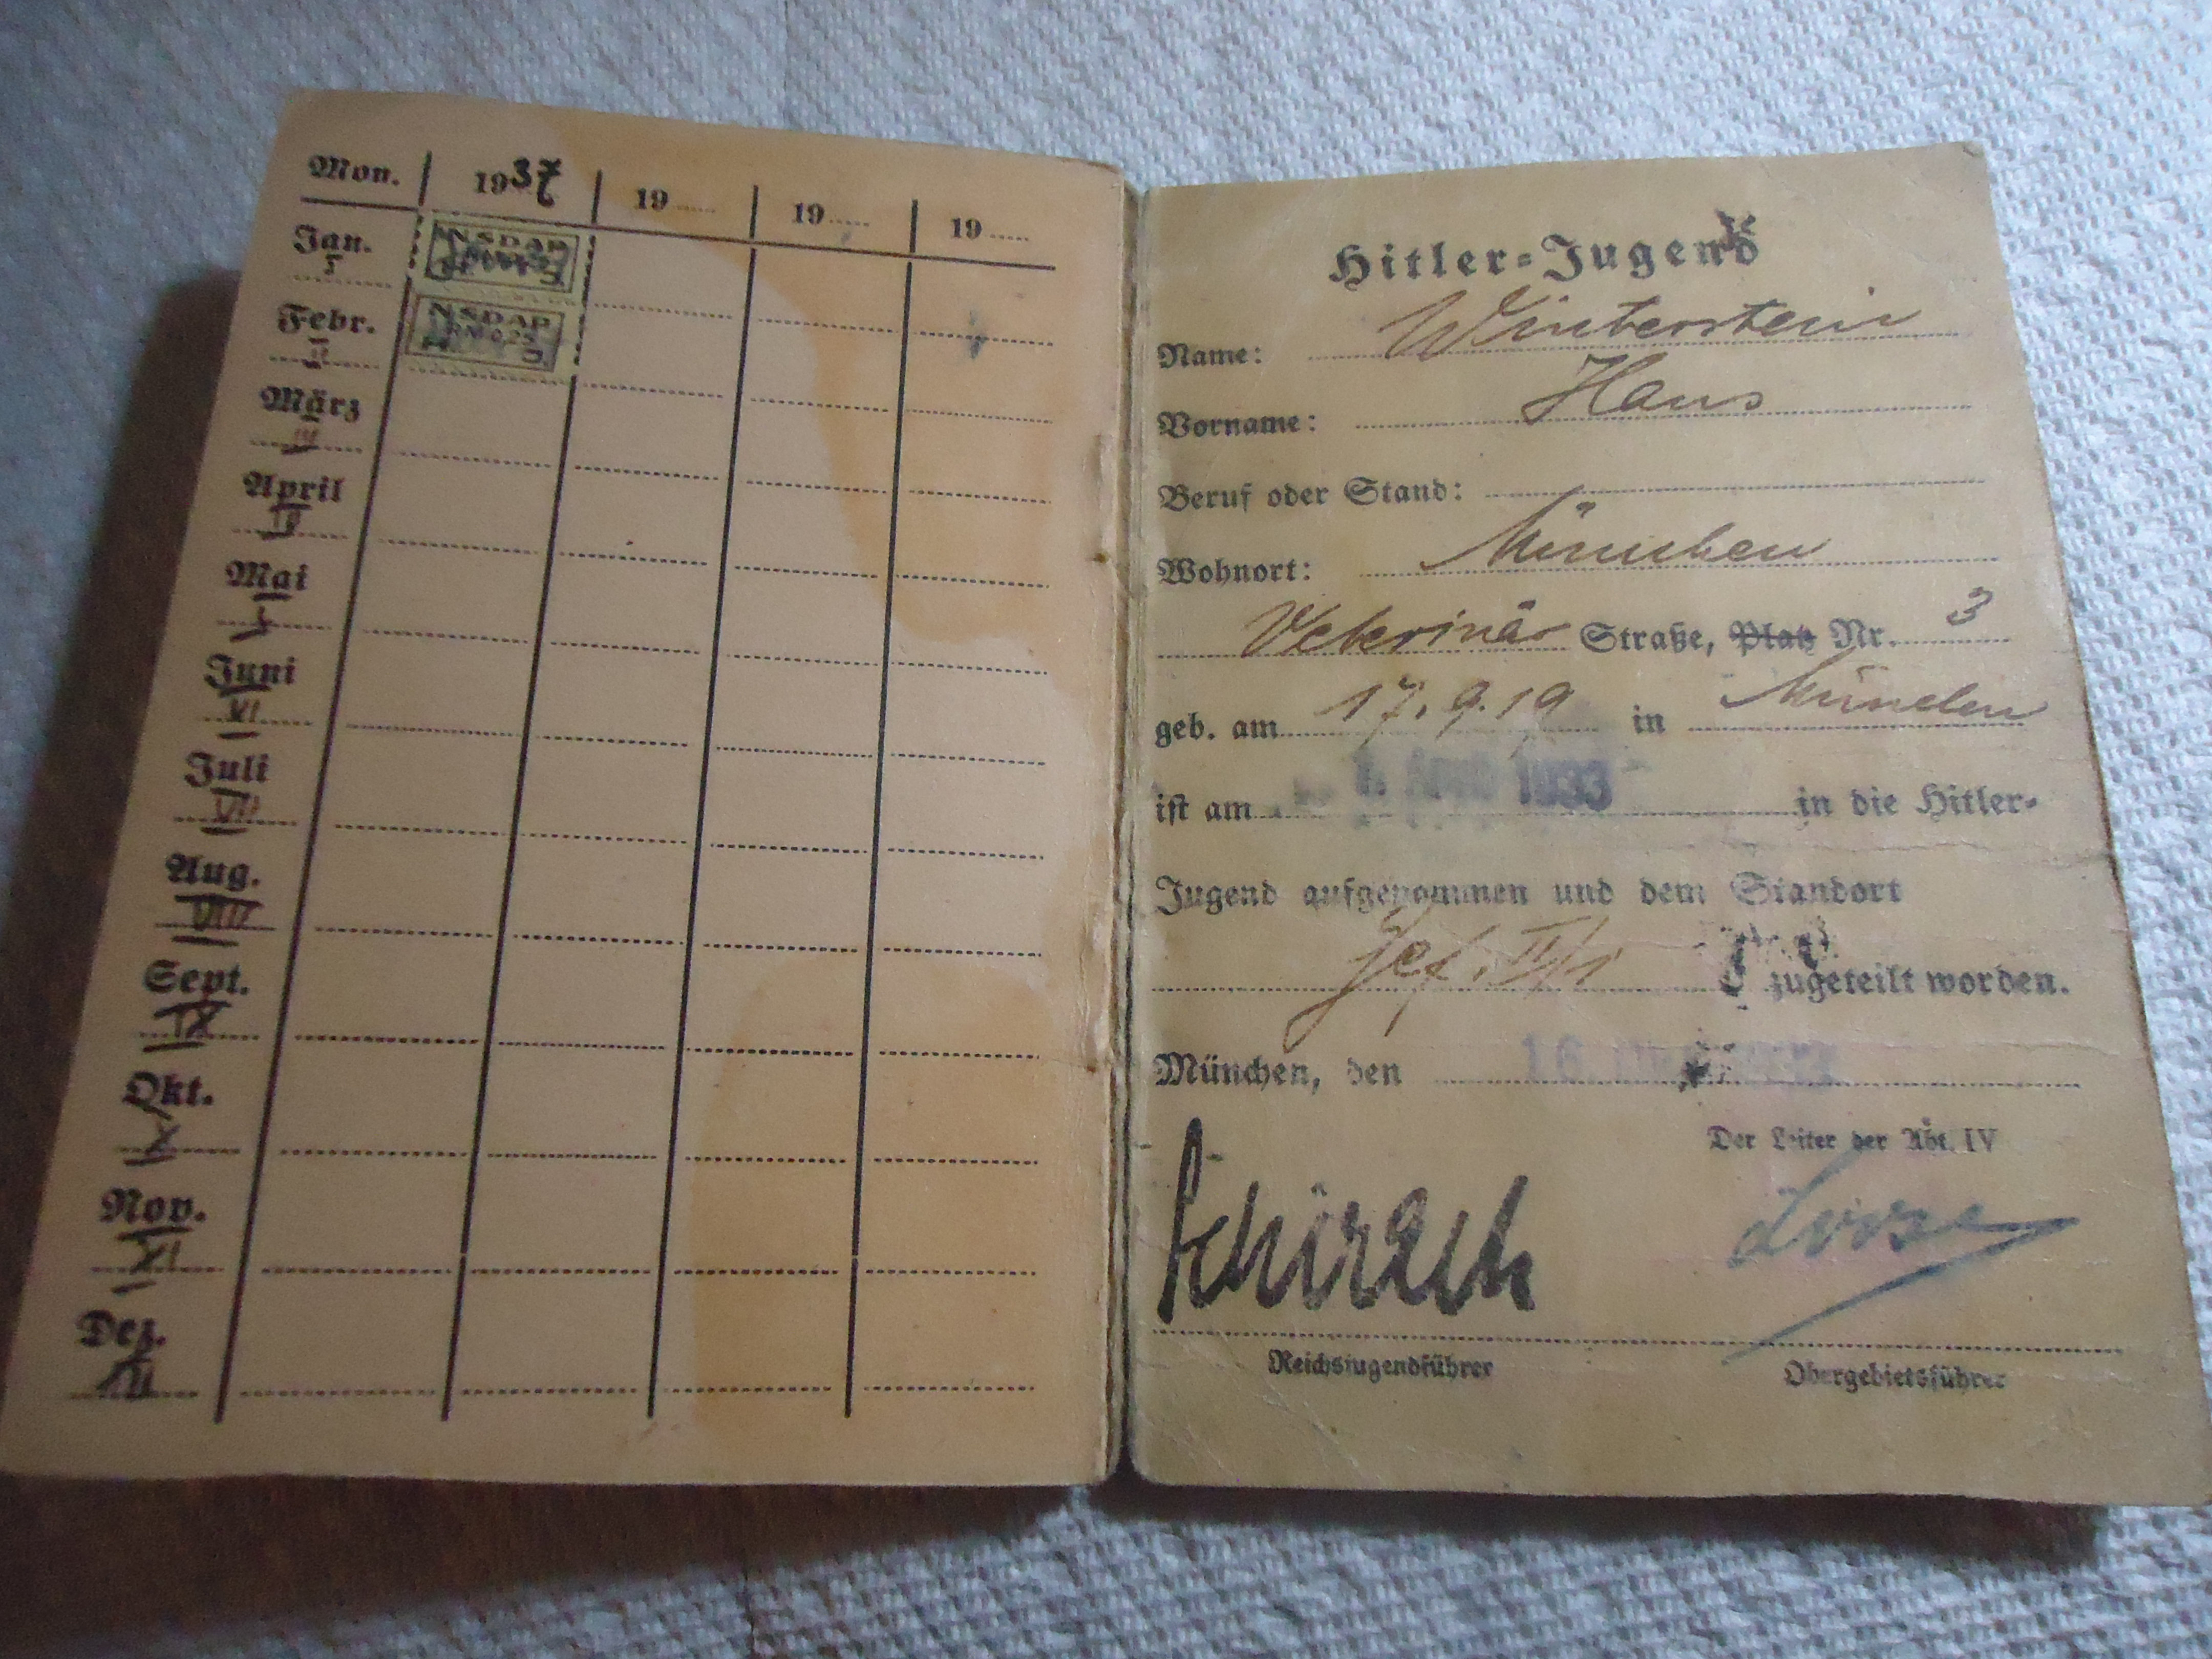 Mon. 1937 19 19 19
Jan.
I
NSDAP
Febr.
II
NSDAP
März
III
April
IV
Mai
V
Juni
VI
Juli
VII
Aug.
VIII
Sept.
IX
Okt.
X
Nov.
XI
Dez.
XII
Hitler-Jugend
Name: Winterstein
Vorname: Hans
Beruf oder Stand:
Wohnort: München
Veterinär Straße, Platz Nr. 3
geb. am 17.9.19 in München
ist am 1933 in die Hitler-
Jugend aufgenommen und dem Standort
Gef. II/1 zugeteilt worden.
München, den 16.
Der Leiter der Abt. IV
Schirach
Reichsjugendführer Obergebietsführer